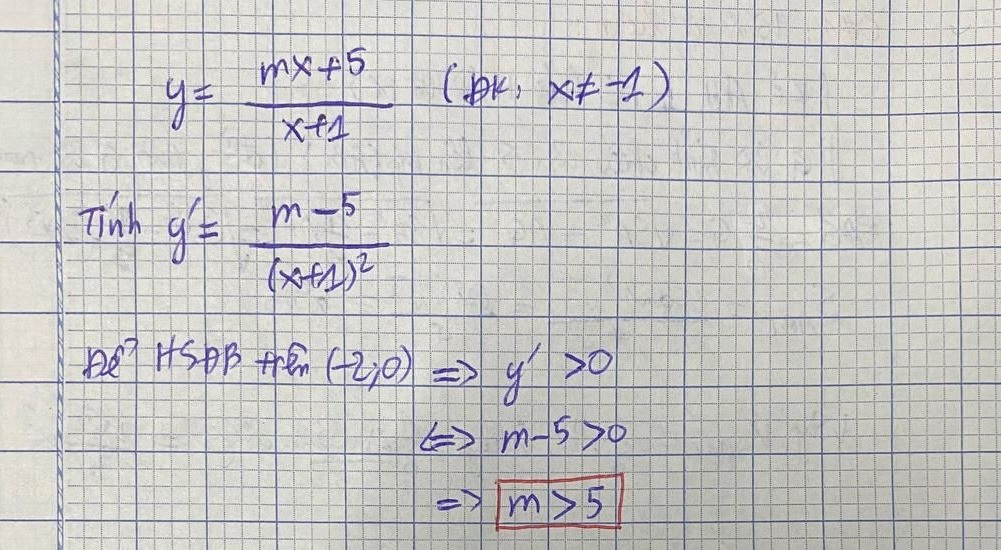 y = (mx+5)/(x+1) (ĐK, x ≠ -1)
Tính y' = (m-5)/(x+1)²
Để HSĐB trên (-2;0) => y' > 0
<=> m-5 > 0
=> m > 5